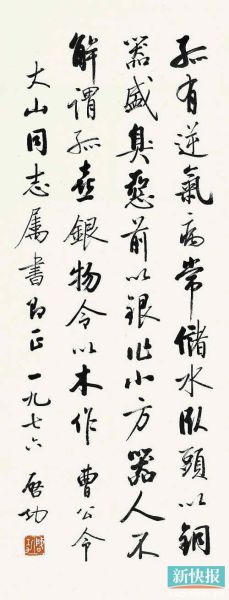 孤有逆氣病常儲水臥頭以銅
器盛臭惡前以銀作小方器人不
解謂孤喜銀物令以木作 曹公令
大山同志属書即正 一九七六 启功
新快报